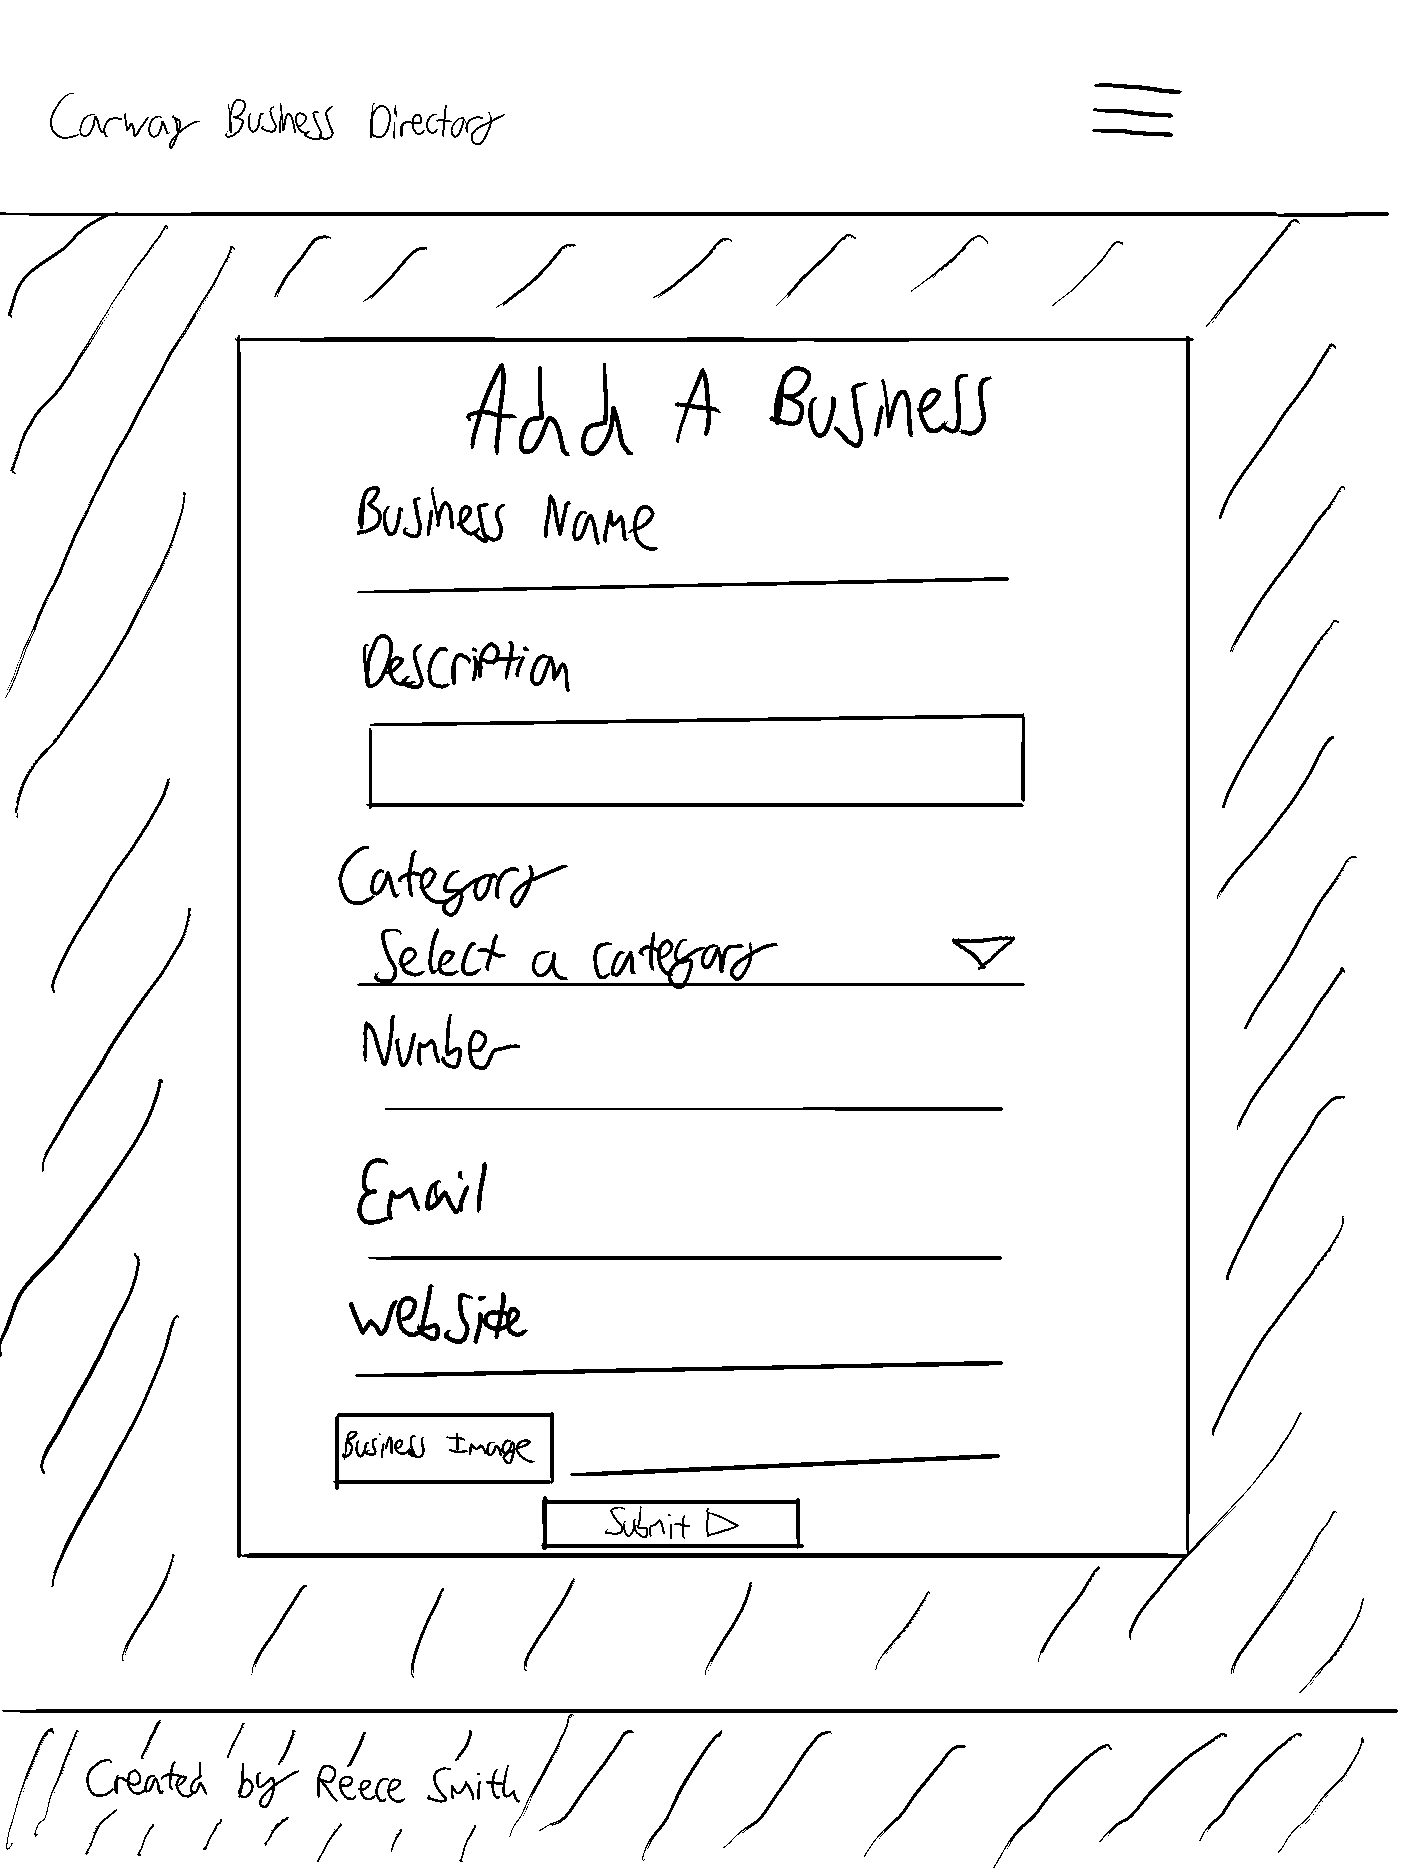 Carway Business Directory
Add A Business
Business Name
Description
Category
Select a category
Number
Email
Website
Business Image
Submit
Created by Reece Smith